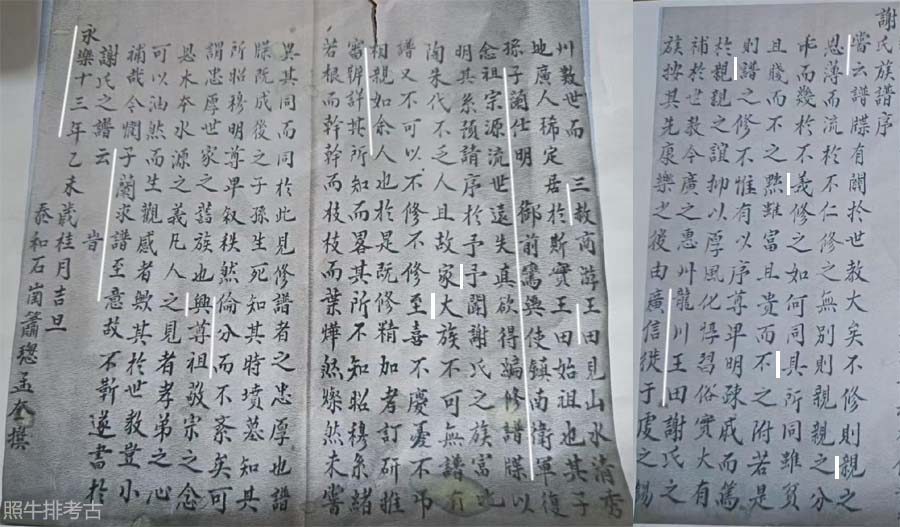 謝氏族譜序
嘗云譜牒有關於世教大矣不修則親之
恩薄而流於不仁修之無別則親親之分
乖而幾於不義修之如何同具所同雖貧
且賤而不之黙雖富且貴而不之附若是
則譜之修不惟有以序尊卑明疎戚而篤
於親親之誼抑以厚風化惇習俗實大有
補於世教今廣之惠川龍川王田謝氏之
族按其先康樂之後由廣信徙于虔之楊
川數世而三教商游王田見山水清秀
地廣人稀定居於斯實王田始祖也其子
孫子蘭仕明 御前鸞輿使鎮南衛軍復
念祖宗源流世遠失真欲得編修譜牒以
明其系預請序於予予聞謝氏之族富比
陶朱代不乏人且故家大族不可無譜有
譜又不可以不修不修至喜不慶憂不吊
相親如余人也於是既修精加考訂研推
審辯詳其所知而畧其所不知昭穆系緒
若根而幹幹而枝枝而葉燁然燦然未嘗
異其同而同於此見修譜者之忠厚也譜
牒既成後之子孫生死知其時墳墓知其
所昭穆明尊卑叙秩然倫分而不紊矣可
謂忠厚世家之舊族也興尊祖敬宗之念
思木本水源之義凡人之見者孝弟之心
可以油然而生觀感者歟其於世教豈小
補哉今憫子蘭求譜至意故不靳遂書於
謝氏之譜云 旹
永樂十三年乙未歲桂月吉旦
泰和石崗蕭璁孟奎撰
照牛排考古